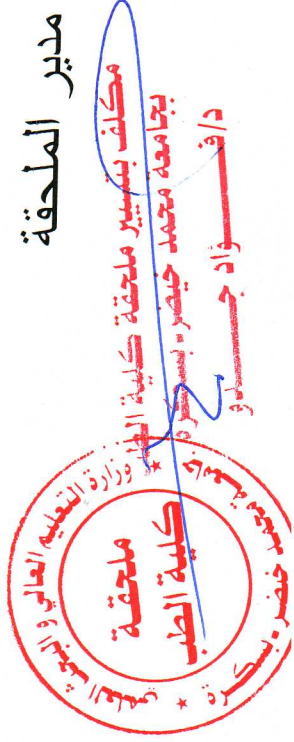 مدير الملحقة
مكلف بتسيير ملحقة كلية الطب
بجامعة محمد خيضر بسكرة
د/فــؤاد جــــدو
وزارة التعليم العالي و البحث العلمي
جامعة محمد خيضر بسكرة
ملحقة
كلية الطب